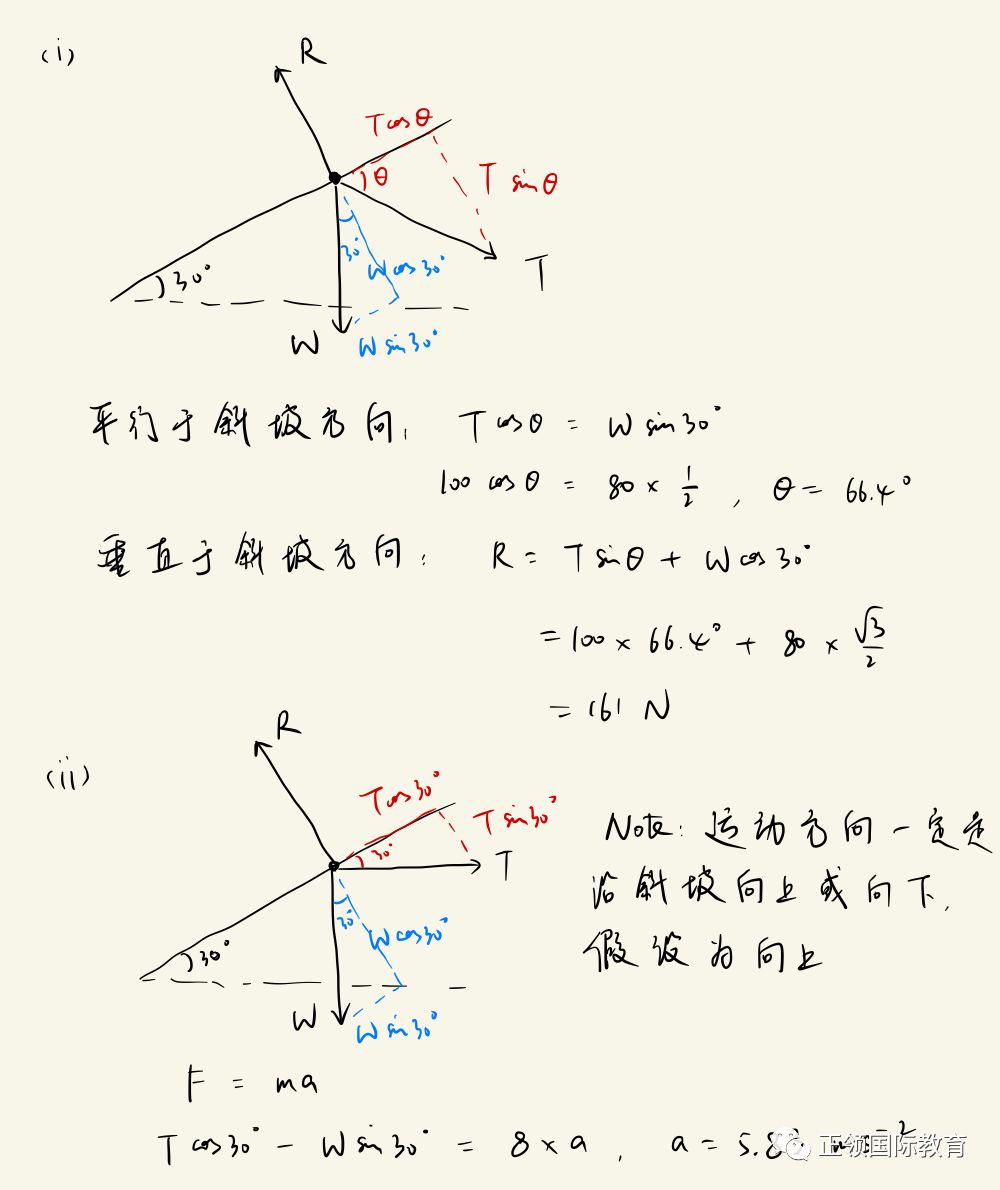 (i)
R
T cos θ
θ
T sin θ
30°
30°
W cos 30°
T
W
W sin 30°
平行于斜坡方向: T cos θ = W sin 30°
100 cos θ = 80 × 1/2 , θ = 66.4°
垂直于斜坡方向: R = T sin θ + W cos 30°
= 100 × 66.4° + 80 × √3/2
= 161 N
(ii)
R
T cos 30°
T sin 30°
30°
T
30°
W cos 30°
30°
W
W sin 30°
Note: 运动方向一定是
沿斜坡向上或向下,
假设为向上
F = ma
T cos 30° - W sin 30° = 8 × a , a = 5.8
正领国际教育